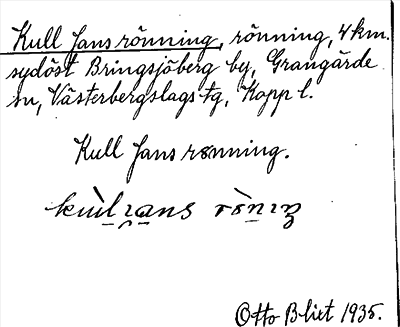 Kull Jans rönning, rönning, 4 km.
sydöst Bringsjöberg by, Grangärde
sn, Västerbergslags tg, Kopp l.
Kull Jans rønning.
Otto Blixt 1935.